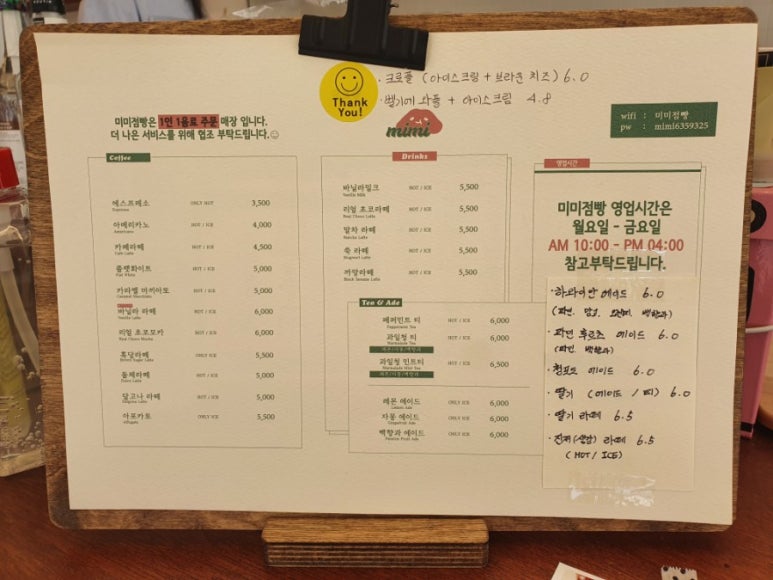 · 크로플 (아이스크림 + 브라운 치즈) 6.0
· 벨기에 와플 + 아이스크림 4.8
Thank
You!
mimi
wifi : 미미점빵
pw : mimi6359325
미미점빵은 1인 1음료 주문 매장 입니다.
더 나은 서비스를 위해 협조 부탁드립니다.
Coffee
에스프레소 ONLY HOT 3,500
Espresso
아메리카노 HOT / ICE 4,000
Americano
카페라떼 HOT / ICE 4,500
Cafe Latte
플랫화이트 HOT / ICE 5,000
Flat White
카라멜 마끼아또 HOT / ICE 5,000
Caramel Macchiato
바닐라 라떼 HOT / ICE 6,000
Vanilla Latte
리얼 초코모카 HOT / ICE 6,000
Real Choco Mocha
흑당라떼 ONLY ICE 5,500
Brown Sugar Latte
돌체라떼 HOT / ICE 5,000
Dolce Latte
달고나 라떼 ONLY ICE 5,000
Dalgona Latte
아포카토 ONLY ICE 5,500
Affogato
Drinks
바닐라밀크 HOT / ICE 5,500
Vanilla Milk
리얼 초코라떼 HOT / ICE 5,500
Real Choco Latte
말차 라떼 HOT / ICE 5,500
Matcha Latte
쑥 라떼 HOT / ICE 5,500
Mugwort Latte
까망라떼 HOT / ICE 5,500
Black Sesame Latte
Tea & Ade
페퍼민트 티 HOT / ICE 6,000
Peppermint Tea
과일청 티 HOT / ICE 6,000
Marmalade Tea
레몬/자몽/백향과
과일청 민트티 HOT / ICE 6,500
Marmalade Mint Tea
레몬/자몽/백향과
레몬 에이드 ONLY ICE 6,000
Lemon Ade
자몽 에이드 ONLY ICE 6,000
Grapefruit Ade
백향과 에이드 ONLY ICE 6,000
Passion Fruit Ade
영업시간
미미점빵 영업시간은
월요일 - 금요일
AM 10:00 - PM 04:00
참고부탁드립니다.
· 하와이안 에이드 6.0
(파인, 망고, 오렌지, 백향과)
· 파인 후르츠 에이드 6.0
(파인, 백향과)
· 청포도 에이드 6.0
· 딸기 (에이드 / 티) 6.0
· 딸기 라떼 6.5
· 진저(생강) 라떼 6.5
(HOT / ICE)